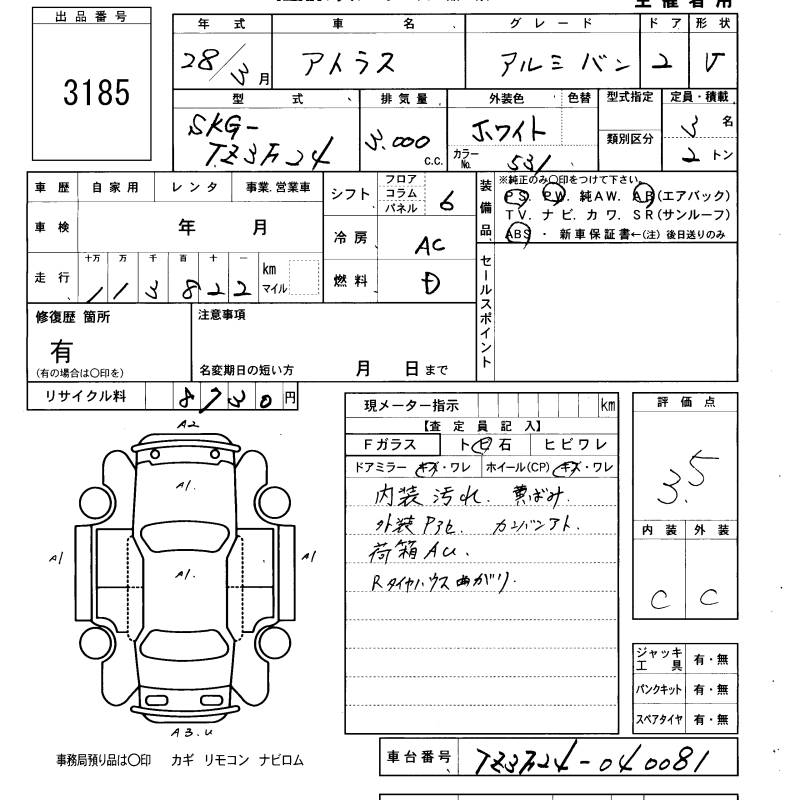 主催者用
出品番号
3185
年式 車名 グレード ドア 形状
28/3月 アトラス アルミバン 2 V
型式 排気量 外装色 色替 型式指定 定員・積載
SKG-
TZ3F24 3.000 c.c. ホワイト 類別区分 3名
カラーNo. 531 2トン
車歴 自家用 レンタ 事業.営業車
シフト フロア コラム パネル 6
装備品 ※純正のみ〇印をつけて下さい。
PS. PW. 純AW. AB(エアバック)
TV. ナビ. カワ. SR(サンルーフ)
ABS ・ 新車保証書←(注) 後日送りのみ
車検 年 月
冷房 AC
走行 十万 万 千 百 十 一
113822 km マイル
燃料 D
セールスポイント
修復歴 箇所 注意事項
有
(有の場合は〇印を) 名変期日の短い方 月 日まで
リサイクル料 8730円
現メーター指示 km
【査定員記入】
Fガラス ト 日 石 ヒビワレ
ドアミラー キズ・ワレ ホイール(CP) キズ・ワレ
内装 汚れ. 黄ばみ.
外装 カンバンアト.
荷箱 AU.
Rタイヤハウス曲がり.
評価点
3.5
内装 外装
C C
A2
A1.
A1
A1.
A1
A3.U
ジャッキ工具 有・無
パンクキット 有・無
スペアタイヤ 有・無
事務局預り品は〇印 カギ リモコン ナビロム
車台番号 TZ3F24-040081